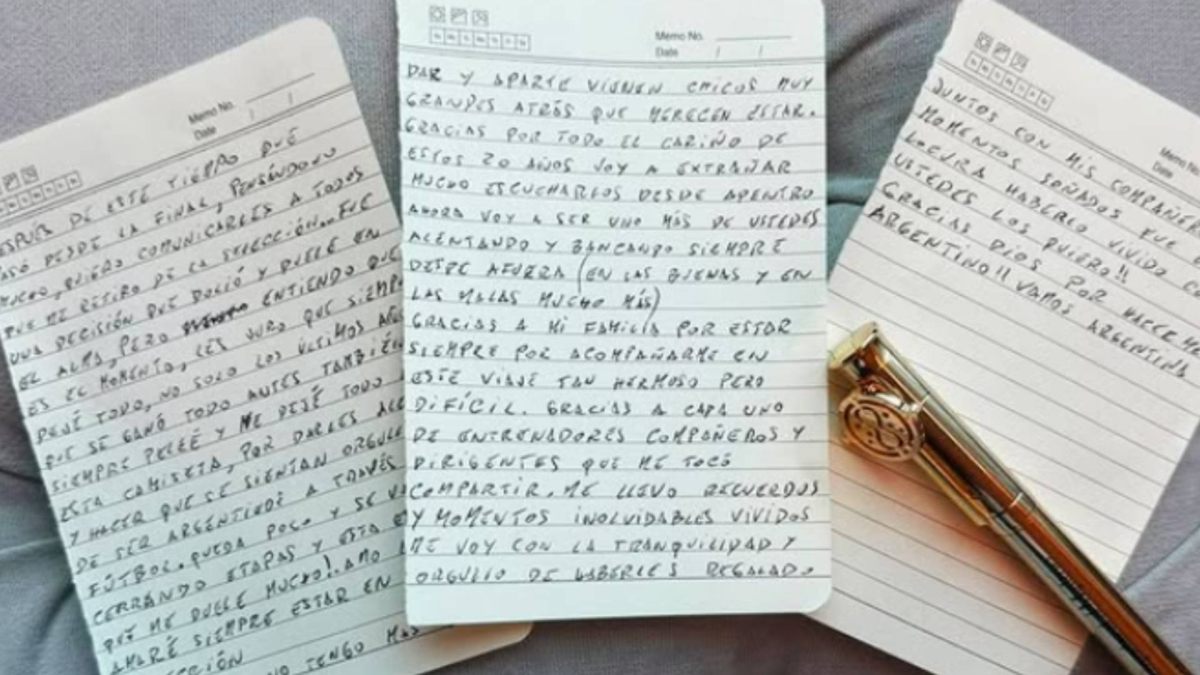 Memo No.
Date / /
ESPUÉS DE ESTE TIEMPO QUE
ASÓ DESDE LA FINAL, PENSÁNDOLO
MUCHO, QUIERO COMUNICARLES A TODOS
QUE ME RETIRO DE LA SELECCIÓN... FUE
UNA DECISIÓN QUE DOLIÓ Y DUELE EN
EL ALMA, PERO ENTIENDO QUE
ES EL MOMENTO, LES JURO QUE SIEMP
DEJÉ TODO, NO SOLO LOS ÚLTIMOS AÑOS
QUE SE GANÓ TODO ANTES TAMBIÉN
SIEMPRE PELEÉ Y ME DEJÉ TODO
ESTA CAMISETA, POR DARLES ALE
Y HACER QUE SE SIENTAN ORGULL
DE SER ARGENTINOS A TRAVÉS
FÚTBOL. QUEDA POCO Y SE VA
CERRANDO ETAPAS Y ESTA E
QUE ME DUELE MUCHO!. AMO
AMARÉ SIEMPRE ESTAR EN
CCIÓN
NO TENGO MÁS
Memo No.
Date / /
DAR Y APARTE VIENEN CHICOS MUY
GRANDES ATRÁS QUE MERECEN ESTAR.
GRACIAS POR TODO EL CARIÑO DE
ESTOS 20 AÑOS VOY A EXTRAÑAR
MUCHO ESCUCHARLOS DESDE ADENTRO
AHORA VOY A SER UNO MÁS DE USTEDES
ALENTANDO Y BANCANDO SIEMPRE
DESDE AFUERA (EN LAS BUENAS Y EN
LAS MALAS MUCHO MÁS)
GRACIAS A MI FAMILIA POR ESTAR
SIEMPRE POR ACOMPAÑARME EN
ESTE VIAJE TAN HERMOSO PERO
DIFÍCIL. GRACIAS A CADA UNO
DE ENTRENADORES COMPAÑEROS Y
DIRIGENTES QUE ME TOCÓ
COMPARTIR. ME LLEVO RECUERDOS
Y MOMENTOS INOLVIDABLES VIVIDOS
ME VOY CON LA TRANQUILIDAD Y
ORGULLO DE HABERLES REGALADO
Memo N
Date
JUNTOS CON MIS COMPAÑER
MOMENTOS SOÑADOS FUE
LOCURA HABERLO VIVIDO CO
USTEDES LOS QUIERO!!
GRACIAS DIOS POR HACERME
ARGENTINO!! VAMOS ARGENTINA